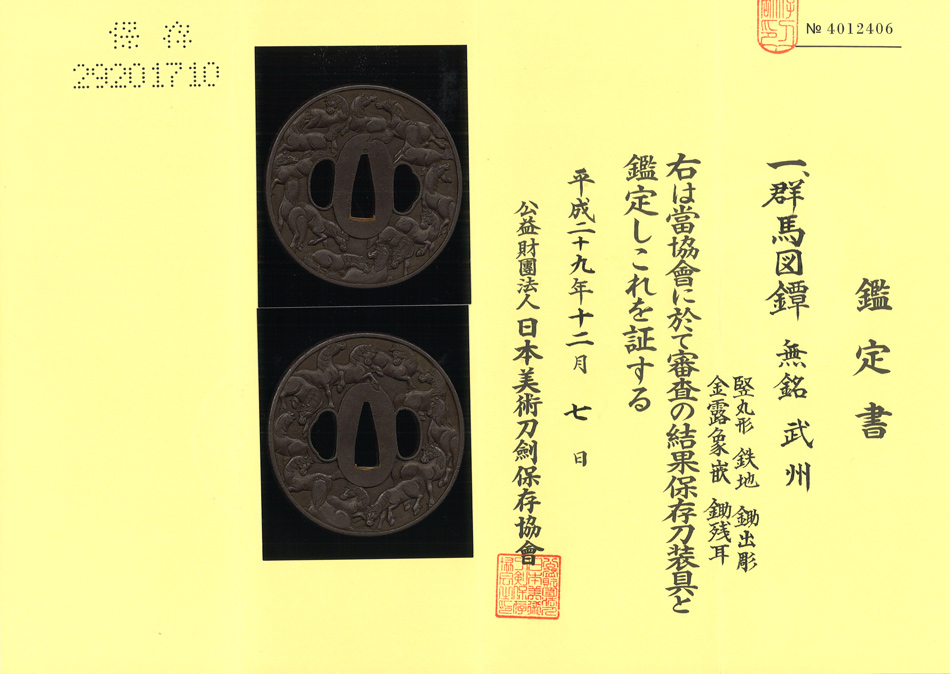 保存
29201710
№ 4012406
鑑定書
一、群馬図鐔 無銘 武州
竪丸形 鉄地 鋤出彫
金露象嵌 鋤残耳
右は當協會に於て審査の結果保存刀装具と
鑑定しこれを証する
平成二十九年十二月 七 日
公益財團法人 日本美術刀劍保存協會